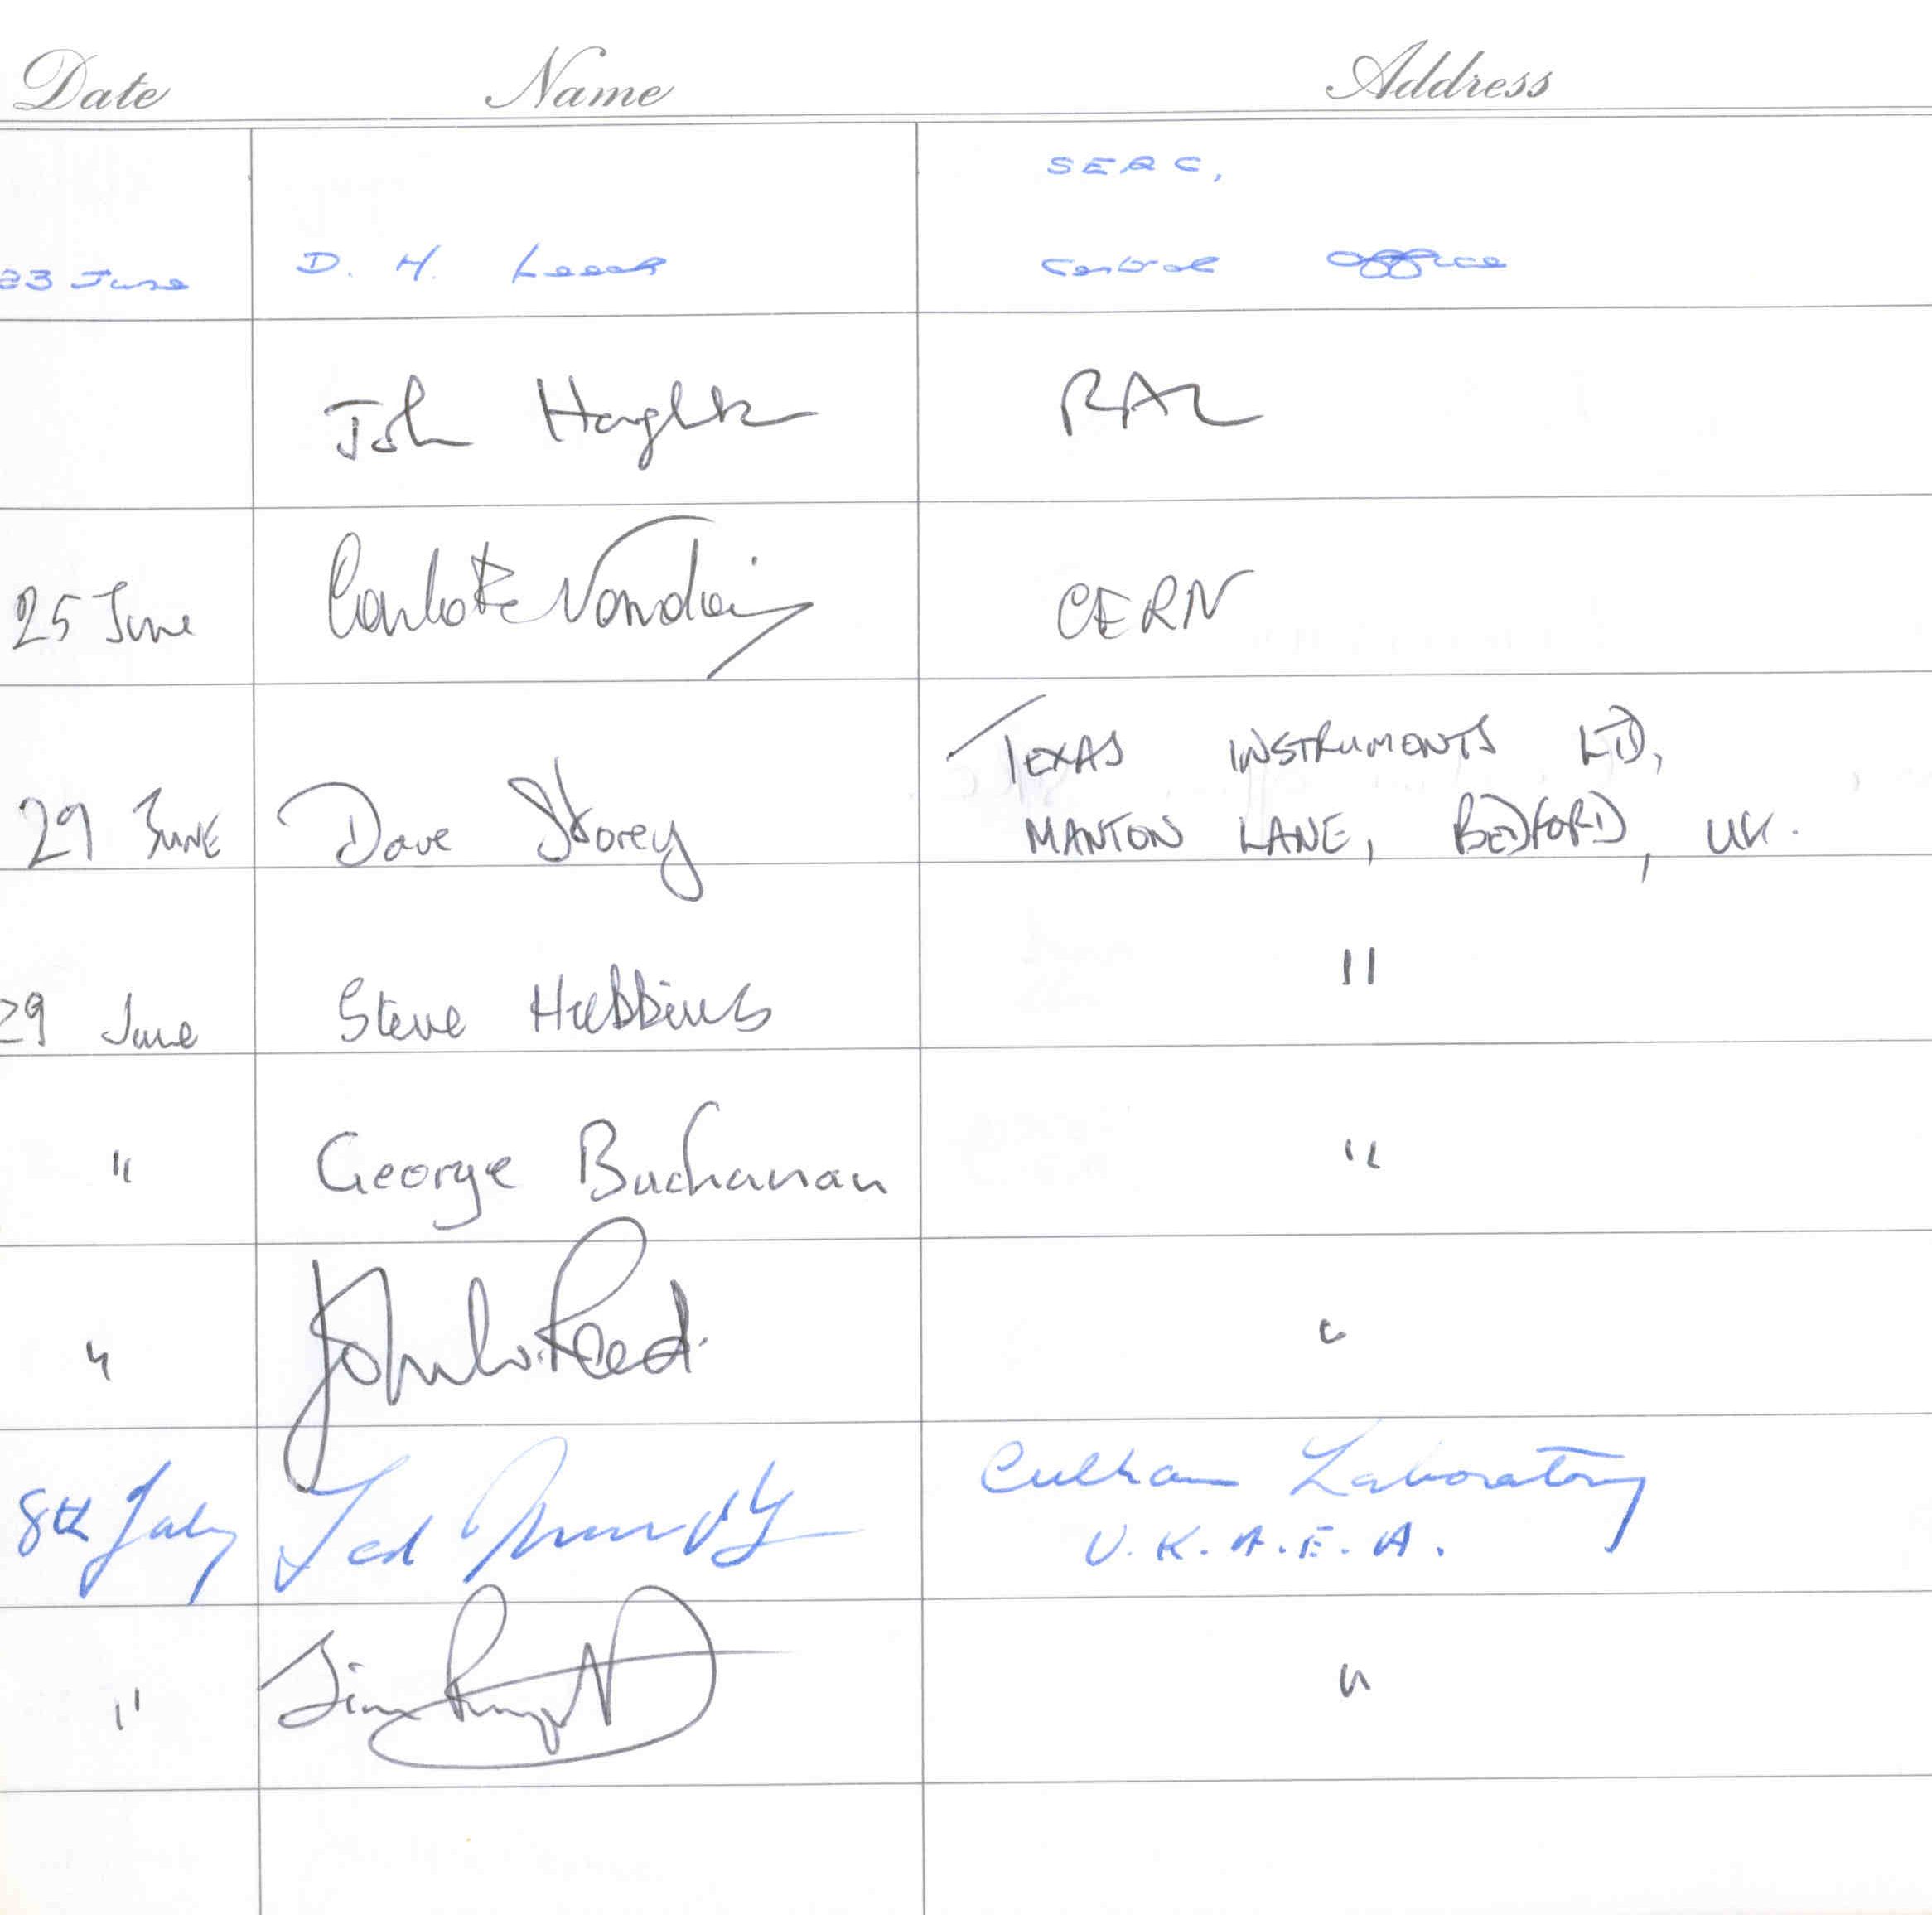 Date Name Address
SERC,
23 June D. H. Leech Central Office
John RAL
25 June CERN
TEXAS INSTRUMENTS LTD,
29 JUNE Dave Storey MANTON LANE, BEDFORD, UK.
29 June Steve Hubbins "
" George Buchanan "
" John W. Reed. "
8th July Ted Culham Laboratory
U.K.A.E.A.
" Jim "